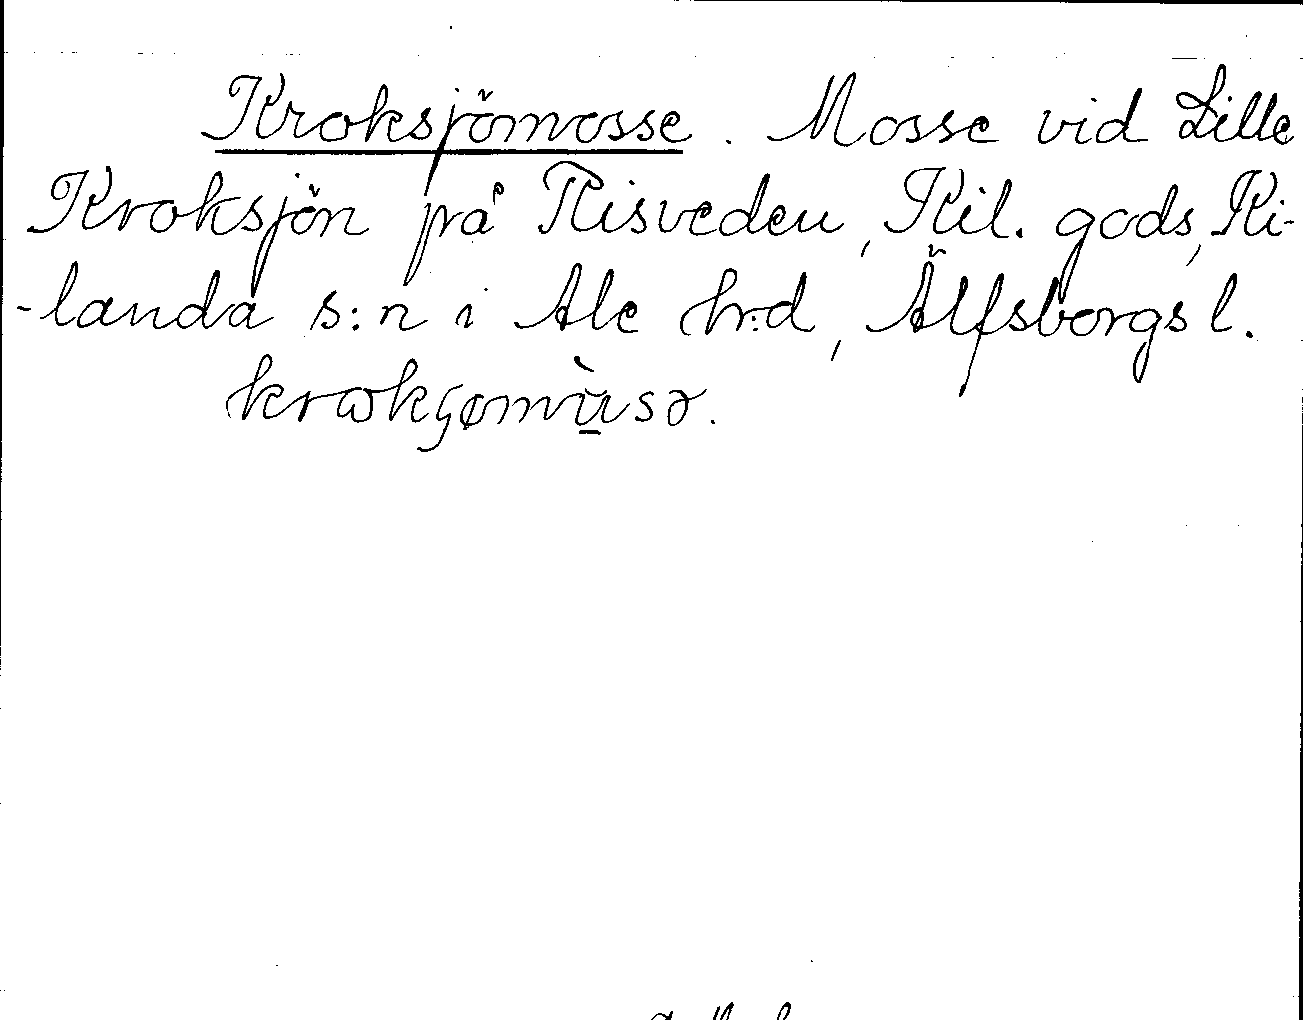 Kroksjömosse. Mosse vid Lille
Kroksjön på Risveden, Kil. gods, Ki-
-landa s:n i Ale hrd, Älfsborgs l.